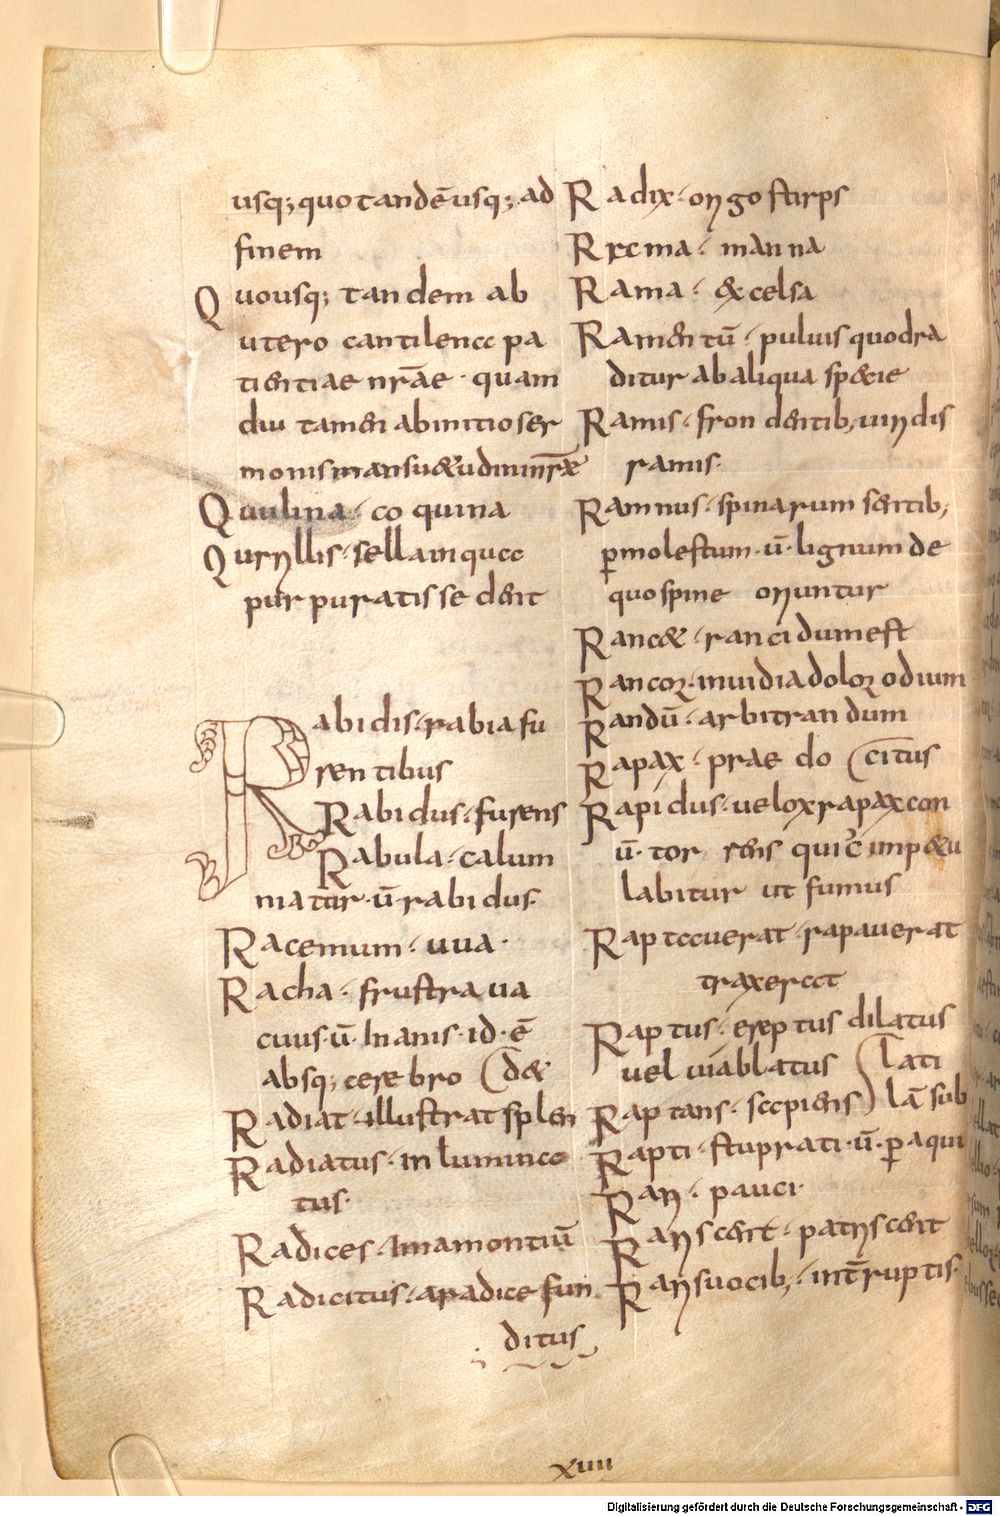 usq; quo tandē usq; ad
finem
Quousq; tandem ab
utero cantilena pa
tientiae nrāe · quam
diu tamen ab initio ser
monis mansu&udini nrāe
Quulina · co quina
Quryllis · sellam quae
purpuratis sedent
Rabidis · rabia fu
rentibus
Rabidus · furens
Rabula · calum
niatur · ū · rabidus ·
Racemum · uua ·
Racha · frustra ua
cuus · ū · Inanis · id · ē
absq; cerebro (d&
Radiat · illustrat splen
Radiatus · Inlumina
tus ·
Radices · Ima montiū
Radicitus · aradice fun
ditus
Radix · origo stirps
Rama · manna
Rama · &celsa
Ramentū · puluis quod ra
ditur ab aliqua sp&ie
Ramis · frondentib; uiridis
ramis ·
Ramnus · spinarum sentib;
p molestum · ū · lignum de
quo spine oriuntur
Ranc& · rancidum est
Rancor · inuidia dolor odium
Randū · arbitrandum
Rapax · praedo (citus
Rapidus · uelox rapax con
ū · tor rens qui c imp&u
labitur ut fumus
Raptauerat · rapauerat
traxerat
Raptus · ereptus dilatus
uel uiablatus (lati
Raptans · saepiens) lā sub
Rapti · stuprati · ū · p aqui
Rari · pauci ·
Rariscent · patriscent
Rarisuocib; · interruptis ·
xuiii
Digitalisierung gefördert durch die Deutsche Forschungsgemeinschaft - DFG